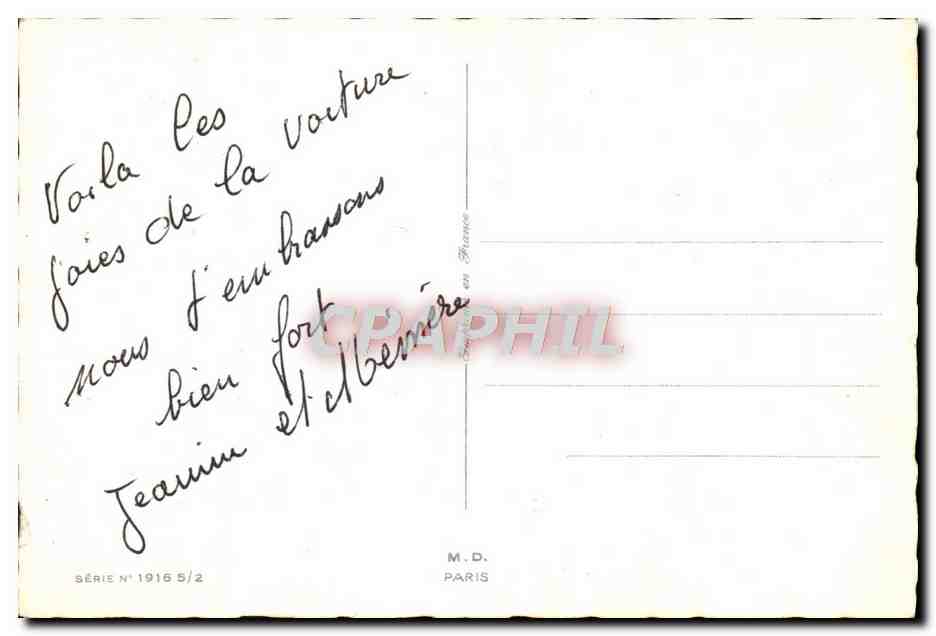 Voila les
joies de la voiture
nous t'embrassons
bien fort
Jeanine et Mémère
Imprimé en France
CPAPHIL
M.D.
PARIS
SÉRIE N° 1916 5/2